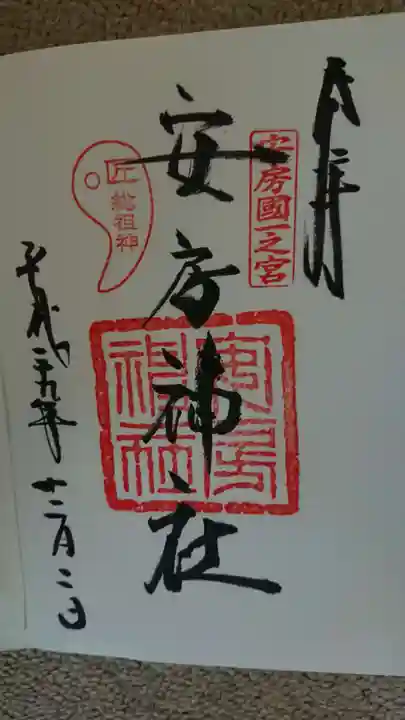 奉拝
安房國一之宮
安房神社
安房神社
匠
総祖神
平成二十九年
十二月二日